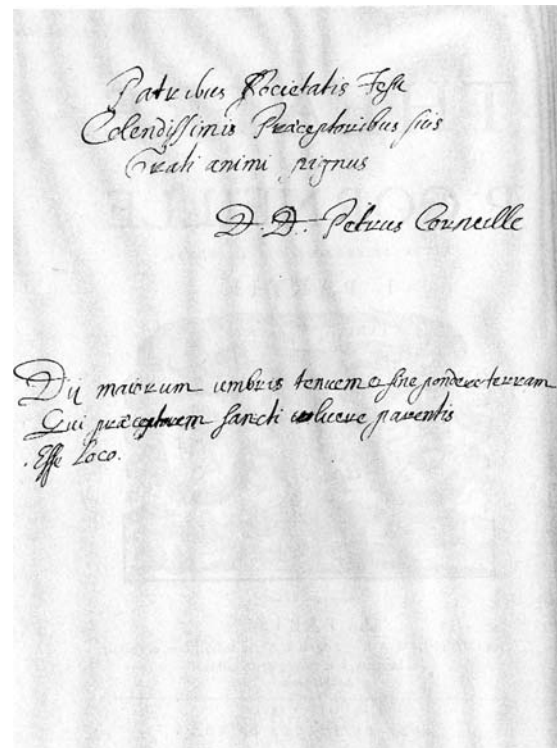 Patribus Societatis Jesu
Colendissimis Præceptoribus suis
Grati animi pignus
D. D. Petrus Corneille
Dii maiorum umbris tenuem & sine pondere terram
Qui præceptorem sancti voluere parentis
Esse loco.